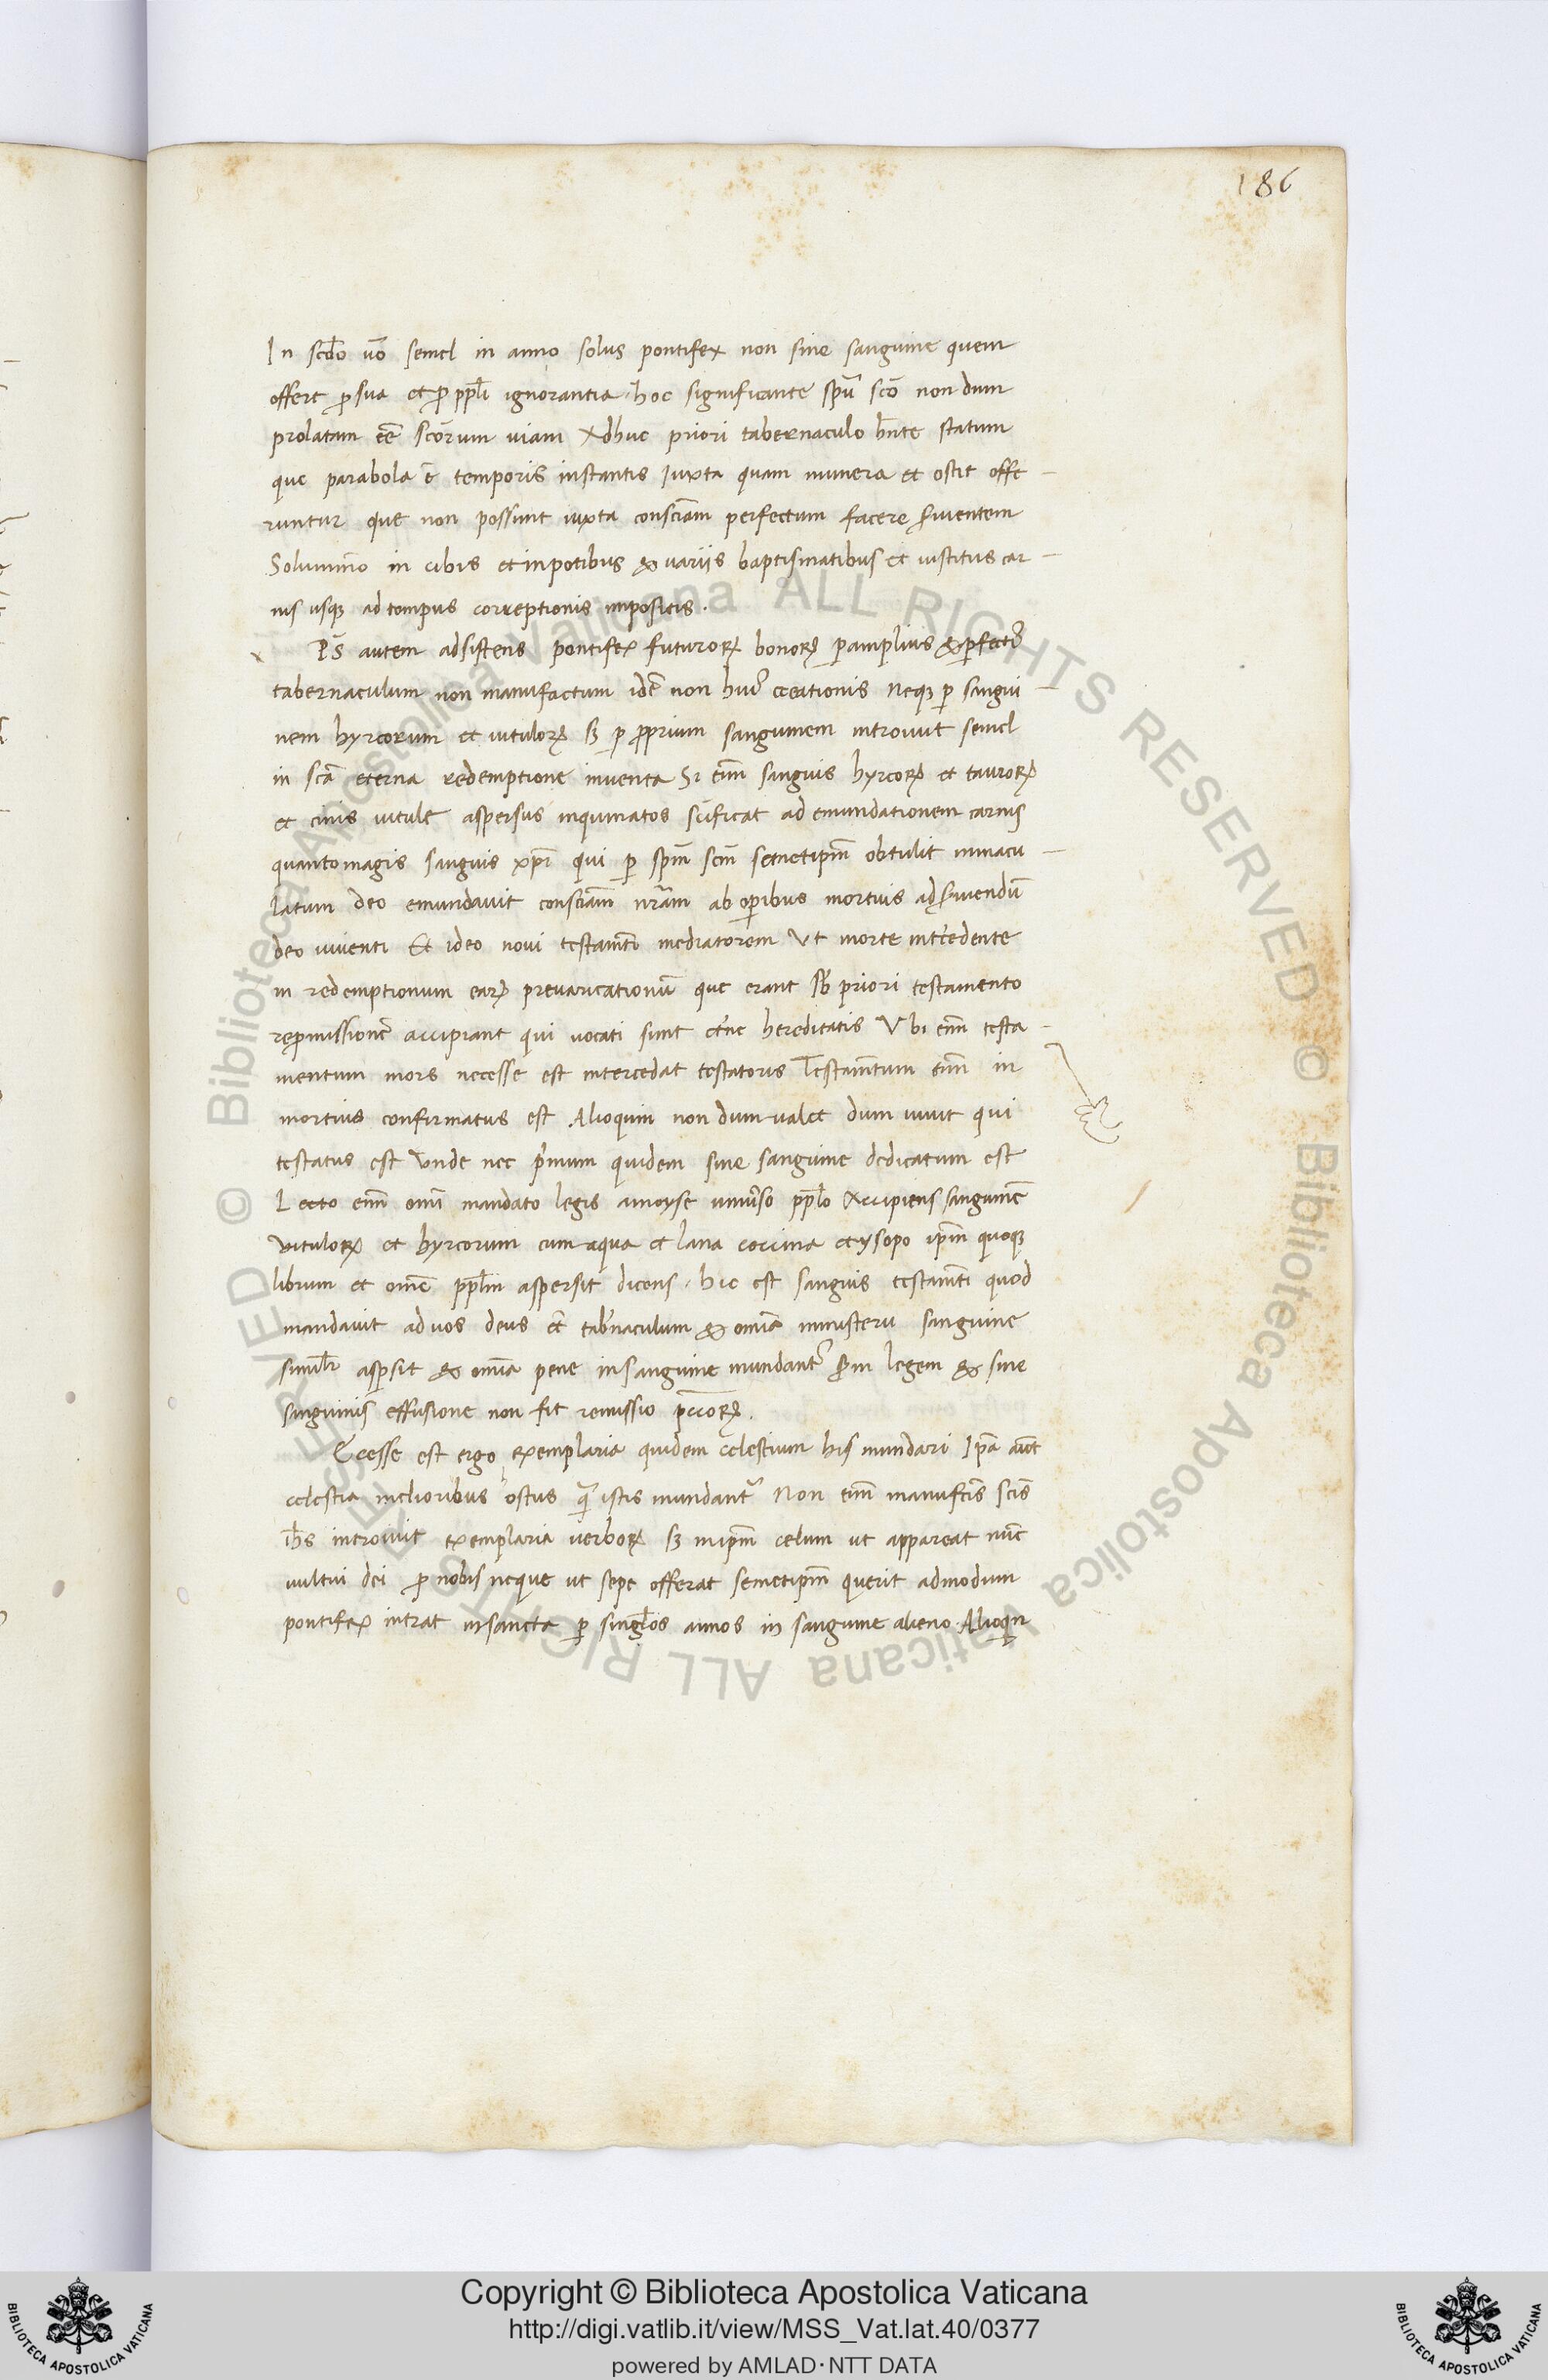 186
In scđo ūo semel in anno solus pontifex non sine sanguine quem
offert ꝓ sua et ꝓ ppl̄i ignorantia · hoc significante spū scō non dum
prolatam eē̄ scōrum uiam Adhuc priori tabernaculo hn̄te statum
que parabola ē temporis instantis Iuxta quam munera et ostie offe
runtur que non possunt iuxta consciām perfectum facere s̄uientem
Solummō in cibis et in potibus & uariis baptismatibus et iustitiis car
nis usqꝫ ad tempus correptionis impositis .
Ps̄ autem adsistens pontifex futuroꝝ bonoꝝ ꝑ amplius & ꝑfecti᷎
tabernaculum non manufactum idē non hui᷎ creationis Neqꝫ ꝑ sangui
nem hyrcorum et uituloꝝ sꝫ ꝑ ꝓprium sanguinem introiuit semel
in scā eterna redemptione inuenta Si eni᷎m sanguis hyrcoꝝ et tauroꝝ
et cinis uitule aspersus inquinatos scīficat ad emundationem carnis
quanto magis sanguis xp̄i qui ꝑ spm̄ scm̄ semetipm̄ obtulit immacu
latum deo emundauit consciām nr̄am ab oꝑibus mortuis ad s̄uiendū
deo uiuenti Et ideo noui testam̄ti mediatorem Vt morte int̄cedente
in redemptionum eaꝝ preuaricationū que erant sb̄ priori testamento
reꝓmissionē accipiant qui uocati sunt et̄ne hereditatis Vbi enī testa
mentum mors necesse est intercedat testatoris Testam̄tum enī in
mortuis confirmatus est Alioquin non dum ualet dum uiuit qui
testatus est Vnde nec p̄mum quidem sine sanguine dedicatum est
Lecto enī omī mandato legis a moyse uniūso ppl̄o Accipiens sanguinē
uituloꝝ et hyrcorum cum aqua et lana coccina et ysopo ipm̄ quoqꝫ
librum et omē ppl̄m aspersit dicens · hic est sanguis testam̄ti quod
mandauit ad uos deus et̄ tab̄naculum & omīa ministerii sanguine
simil̄r asꝑsit & omīa pene in sanguine mundant᷎ s̄m legem & sine
sanguinis effusione non fit remissio pcc̄oꝝ .
Ecesse est ergo exemplaria quidem celestium his mundari Ipā aūt
celestia melioribus ostiis q̄ istis mundant᷎ Non enī manufcīs scīs
ih̄s introiuit exemplaria uerboꝝ sꝫ in ipm̄ celum ut appareat nūc
uultui dei ꝓ nobis neque ut sepe offerat semetipm̄ querit admodum
pontifex intrat in sancta ꝑ singl̄os annos in sanguine alieno · Alioqin
© Biblioteca Apostolica Vaticana ALL RIGHTS RESERVED © Biblioteca Apostolica Vaticana ALL RIGHTS RESERVED
Copyright © Biblioteca Apostolica Vaticana
http://digi.vatlib.it/view/MSS_Vat.lat.40/0377
powered by AMLAD·NTT DATA
BIBLIOTECA APOSTOLICA VATICANA
BIBLIOTECA APOSTOLICA VATICANA